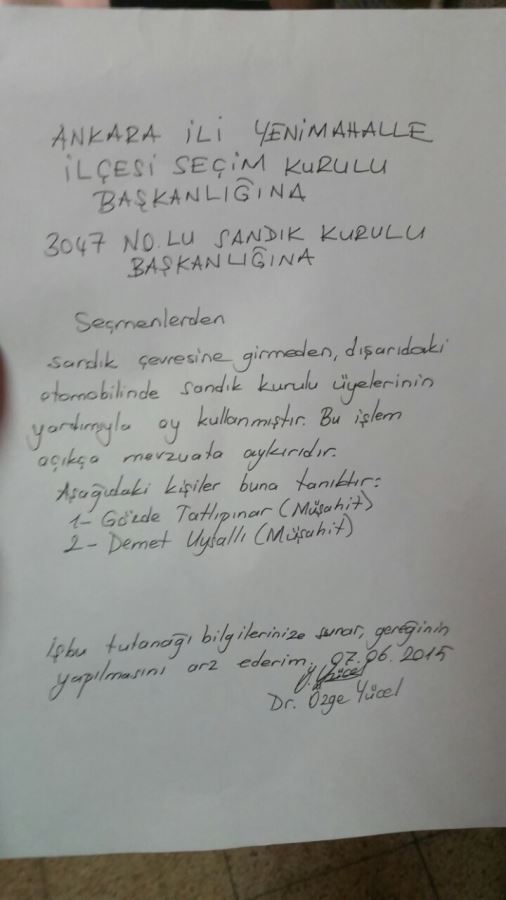 ANKARA İLİ YENİMAHALLE
İLÇESİ SEÇİM KURULU
BAŞKANLIĞINA
3047 NO.LU SANDIK KURULU
BAŞKANLIĞINA
Seçmenlerden
sandık çevresine girmeden, dışarıdaki
otomobilinde sandık kurulu üyelerinin
yardımıyla oy kullanmıştır. Bu işlem
açıkça mevzuata aykırıdır.
Aşağıdaki kişiler buna tanıktır:
1- Gözde Tatlıpınar (Müşahit)
2- Demet Uysallı (Müşahit)
İşbu tutanağı bilgilerinize sunar, gereğinin
yapılmasını arz ederim. 07.06.2015
Dr. Özge Yücel